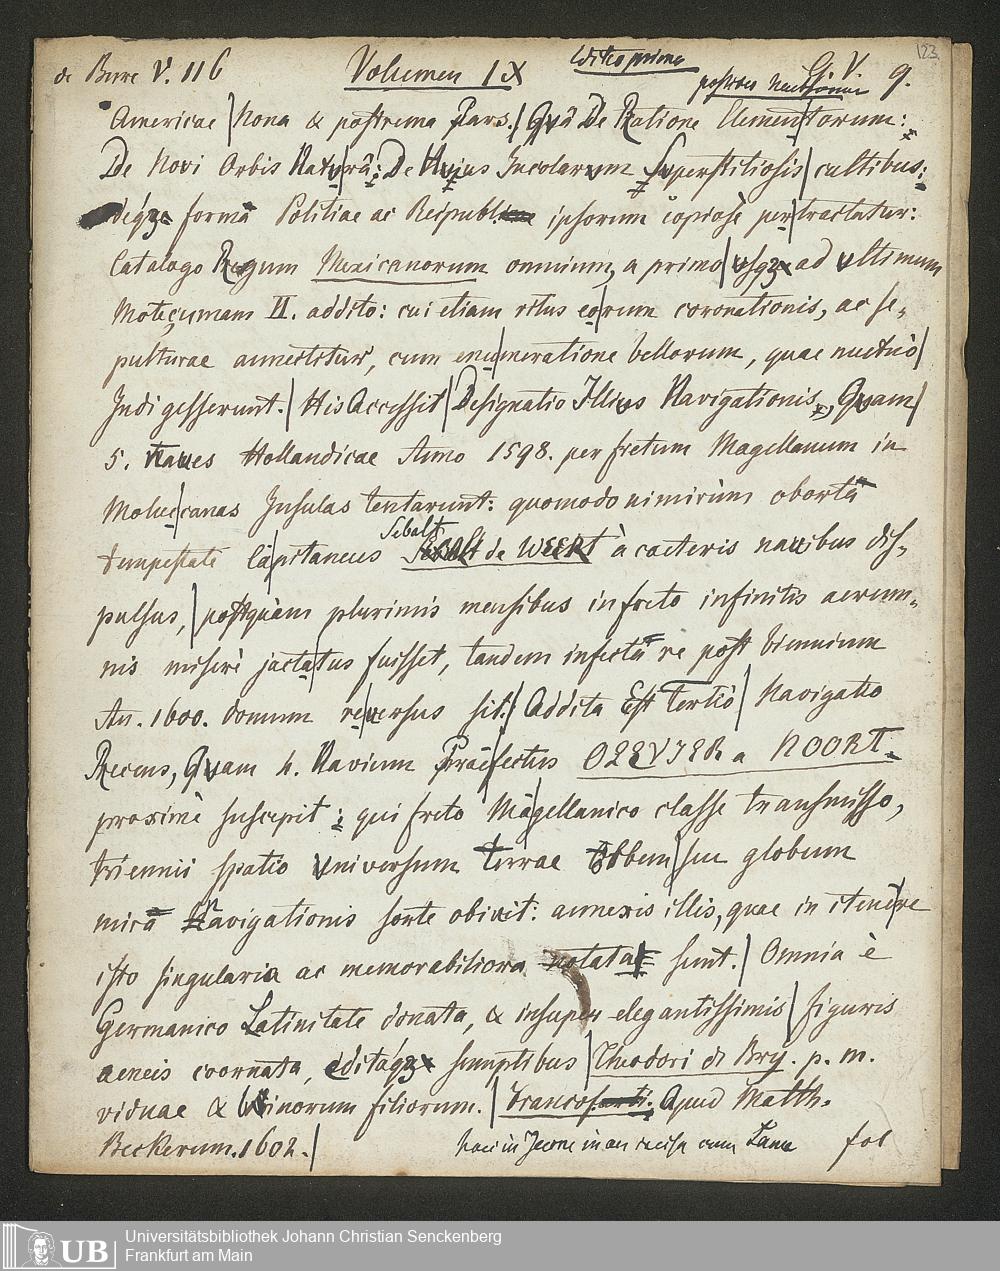 de Burre V. 116 Volumen IX Editio prima G. V. 9.
123
Americae | Nona & postrema Pars. | Qvâ De Ratione Elemen|torum:
De Novi Orbis Natv|râ: De Hvius Incolarvm Svperstitiosis | cultibus:
déq3 formâ Politiae ac Reipubl. ipsorum copiosè per|tractatur:
Catalogo Regum Mexicanorum omnium, a primo | vsq3 ad vltimum
Moteçumam II. addito: cui etiam ritus eo|rum coronationis, ac se-
pulturae annectitur, cum enu|meratione bellorum, quae mutuò |
Indi gesserunt. | His Accessit | Designatio Illivs Navigationis, Qvam |
5. naues Hollandicae Anno 1598. per fretum Magellanum in
Moluc|canas Insulas tentarunt: quomodo nimirùm obortâ
tempestate Ca|pitaneus Sebalt de WEERT à caeteris nauibus dis-
pulsus, | postquàm plurimis mensibus in freto infinitis aerum-
nis miserè jacta|tus fuisset, tandem infectâ re post biennium
An. 1600. domum re|uersus sit. | Addita Est Tertiò | Navigatio
Recens, Qvam 4. Navium Prae|fectus OLIVIER a NOORT
proximè suscepit: qui freto Ma|gellanico classe transmisso,
triennii spatio vniversum terrae Orbem | seu globum
mirâ navigationis sorte obivit: annexis illis, quae in itine|re
isto singularia ac memorabiliora notata sunt. | Omnia è
Germanico Latinitate donata, & insuper elegantissimis | figuris
aeneis coornata, editáq3 sumptibus | Theodori de Bry. p. m.
viduae & binorum filiorum. | Francofurti. Apud Matth.
Beckerum. 1602. | fol
UB
Universitätsbibliothek Johann Christian Senckenberg
Frankfurt am Main